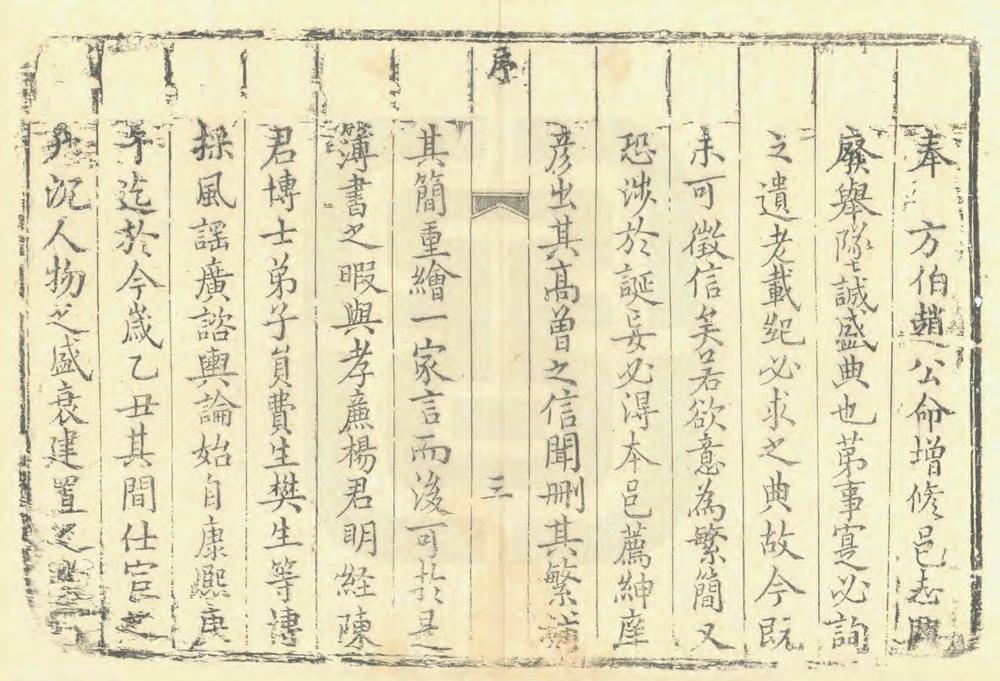 奉 方伯趙公命增修邑志興
廢舉墜誠盛典也苐事寔必詢
之遺老載紀必求之典故今既
未可徵信矣若欲意為繁簡又
恐涉於誕妄必得本邑薦紳座
彦出其高曾之信聞刪其繁補
序
三
其簡重繪一家言而後可於是
簿書之暇與孝廉楊君明経陳
君博士弟子員費生樊生等博
採風謡廣諮輿論始自康熙庚
午迄於今歲乙丑其間仕宦之
沉人物之盛衰建置之